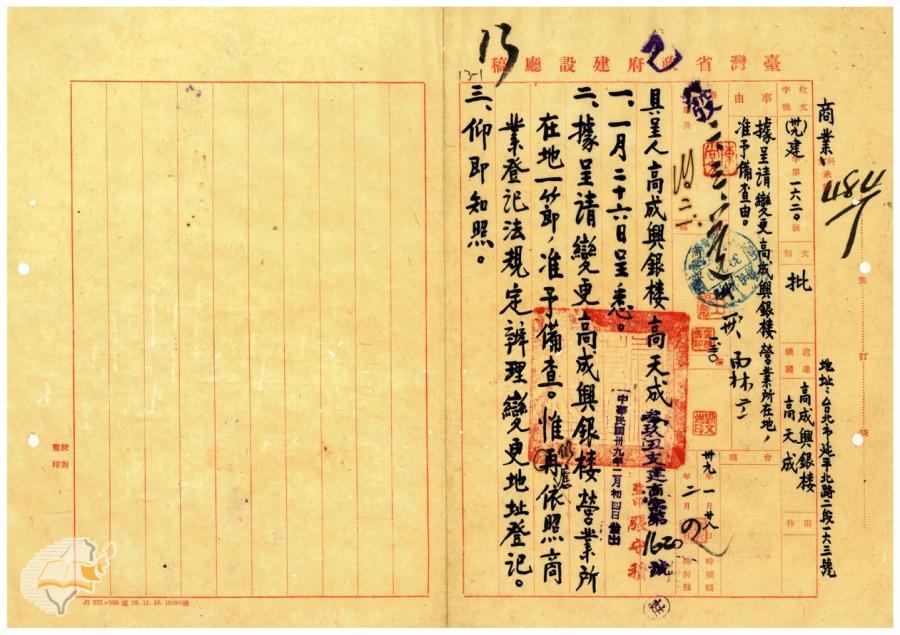 臺灣省政府建設廳稿
13
13-1
484
商業
收文
字號
(卅九)建
第一六二〇號
文別
批
送達機關
高成興銀樓
高天成
地址：台北市延平北路二段一六三號
附件
事由
據呈請變更高成興銀樓營業所在地，
准予備查由。
會稿
卅九年一月廿八
年二月
具呈人高成興銀樓高天成
參玖丑支建商字第1620號
監印張守積
一、一月二十六日呈悉。
中華民國卅九年二月初四日發出
二、據呈請變更高成興銀樓營業所
在地一節，准予備查。惟仍應再依照商
業登記法規定辦理變更地址登記。
三、仰即知照。
校對
監印
裝
訂
線